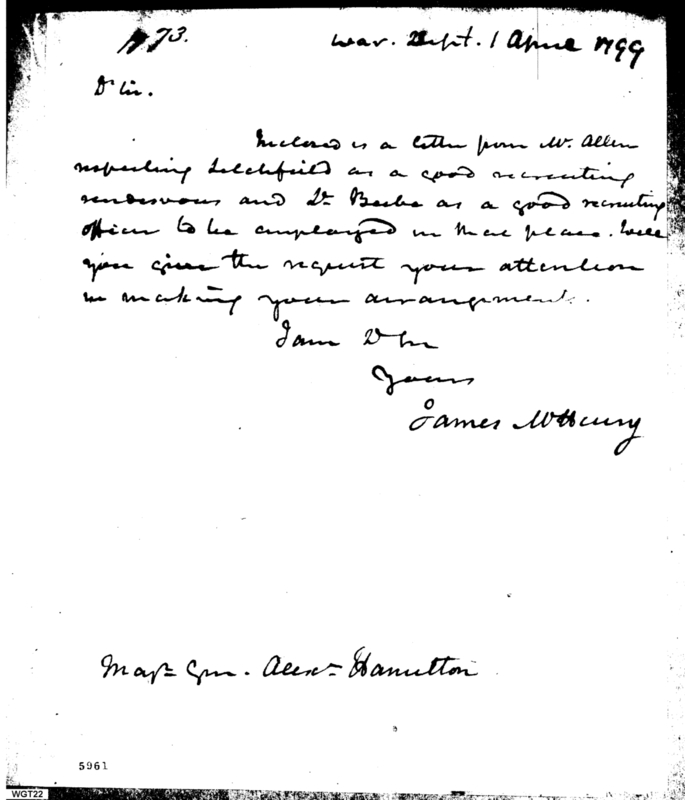 N 73.
War. Dept. 1 April 1799
Dr Sir.
Inclosed is a letter from Mr. Allen
respecting Litchfield as a good recruiting
rendesvous and Dr Beebe as a good recruiting
officer to be employed in that place. Will
you give the request your attention
in making your arrangement.
I am Dr Sir
Yours
James McHenry
Majr Gen. Alexr Hamilton
5961
WGT22